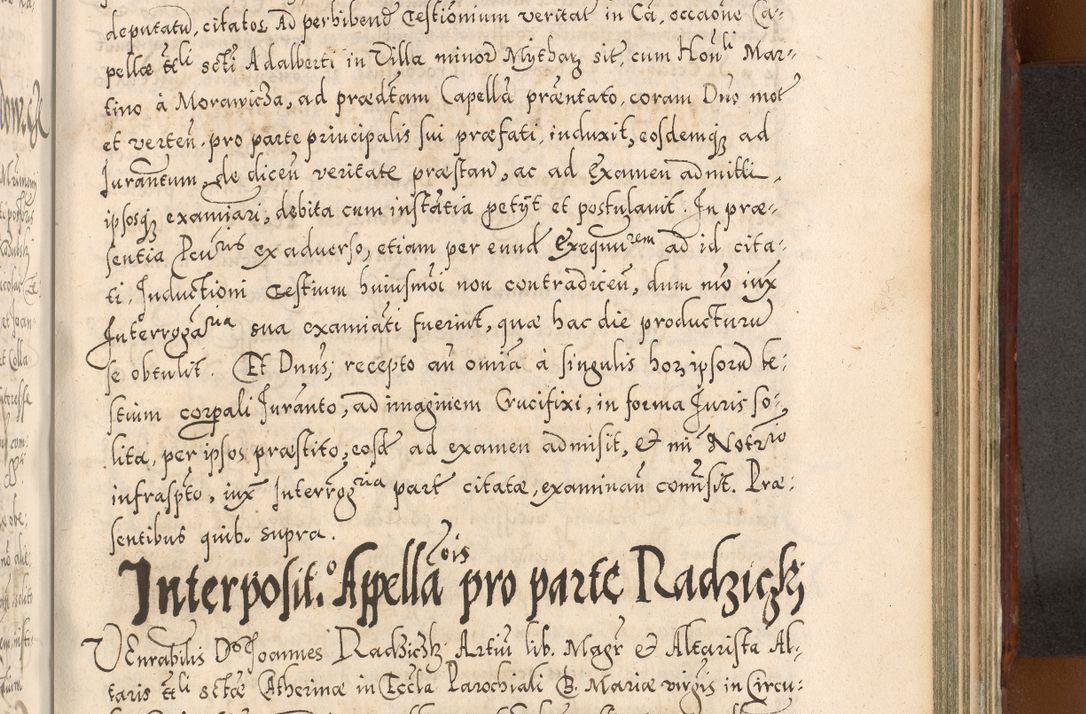 deputatũ, citatos Ad perhibend Testionium veritat in Cã, occaõne Ca-
pellæ ttli scti Adalberti in Villa minorĩ Mythaz sit, cum Honli Mar-
tino à Morawicza, ad prædtam Capellã præntato, coram Dno mot
et verteñ. pro parte principalis sui præfati, induxit, eosdemqz ad
Iuramtum, de diceñ veritate præstan, ac ad Examen admitti,
ipsosqz examiari, debita cum instãtia petÿt et postulauit. In præ-
sentia Pcuris ex aduerso, etiam per eund Exequurem ad id cita-
ti, Inductioni Testium huiusmõi non contradiceñ, dum mõ iux
Interrogãria sua examiãti fuerint, quæ hac die producturũ
se obtulit. Et Dnus, recepto añ omĩa à singulis horz ipsorũ te-
stium corpali Iurãnto, ad imaginem Crucifixi, in forma Iuris so-
lita, per ipsos præstito, eosd ad examen admisit, & mi Notrio
infraspto, iux Interrogria part citatæ, examinañ comisit. Præ-
sentibus quib. supra.
Interposit.o Appellãois pro parte Radziczkj
VEnrabilis Dos Joannes Radziczkj Artiũ lib. Magr & Altarista Al-
taris ttli sctæ Catherinæ in Eccla Parochiali B. Mariæ virgis in Circu-